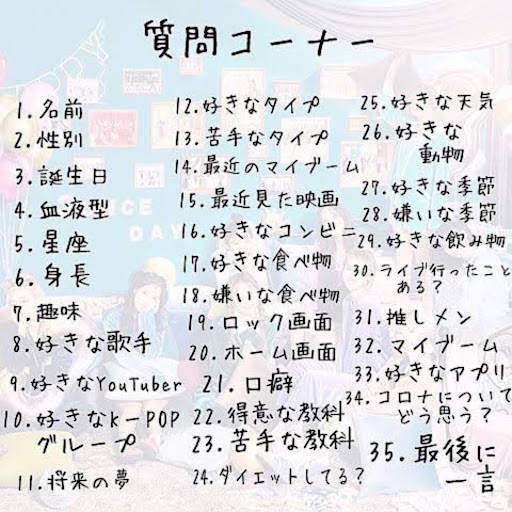 質問コーナー
1.名前
2.性別
3.誕生日
4.血液型
5.星座
6.身長
7.趣味
8.好きな歌手
9.好きなYouTuber
10.好きなK-POP
グループ
11.将来の夢
12.好きなタイプ
13.苦手なタイプ
14.最近のマイブーム
15.最近見た映画
16.好きなコンビニ
17.好きな食べ物
18.嫌いな食べ物
19.ロック画面
20.ホーム画面
21.口癖
22.得意な教科
23.苦手な教科
24.ダイエットしてる？
25.好きな天気
26.好きな
動物
27.好きな季節
28.嫌いな季節
29.好きな飲み物
30.ライブ行ったこと
ある？
31.推しメン
32.マイブーム
33.好きなアプリ
34.コロナについて
どう思う？
35.最後に
一言